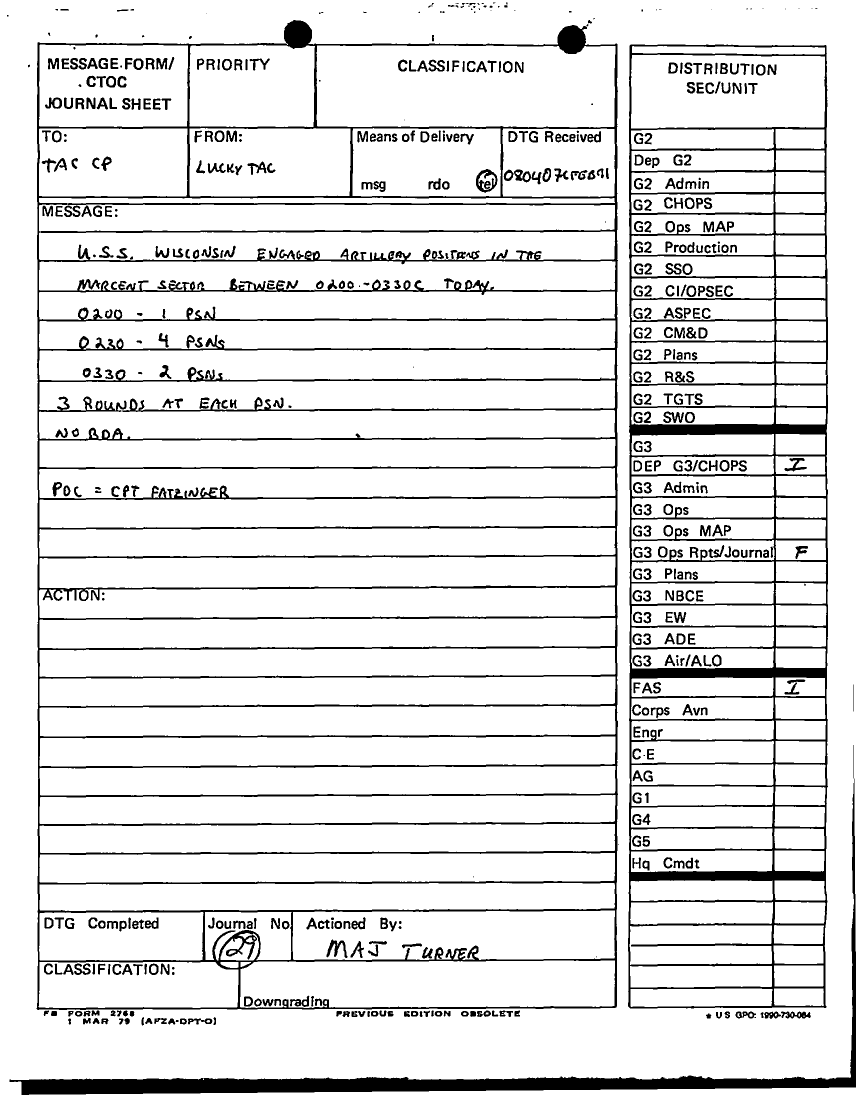 MESSAGE FORM/
CTOC
JOURNAL SHEET
PRIORITY
CLASSIFICATION
TO:
TAC CP
FROM:
LUCKY TAC
Means of Delivery
msg rdo tel
DTG Received
MESSAGE:
U.S.S. WISCONSIN ENGAGED ARTILLERY POSITIONS IN THE
MARCENT SECTOR BETWEEN 0200-0330C TODAY.
0200 - 1 PSN
0230 - 4 PSNs
0330 - 2 PSNs
3 ROUNDS AT EACH PSN.
NO BDA.
POC = CPT FATZINGER
ACTION:
DTG Completed
Journal No.
129
Actioned By:
MAJ TURNER
CLASSIFICATION:
Downgrading
FB FORM 2768
1 MAR 79 (AFZA-DPT-O)
PREVIOUS EDITION OBSOLETE
DISTRIBUTION
SEC/UNIT
G2
Dep G2
G2 Admin
G2 CHOPS
G2 Ops MAP
G2 Production
G2 SSO
G2 CI/OPSEC
G2 ASPEC
G2 CM&D
G2 Plans
G2 R&S
G2 TGTS
G2 SWO
G3
DEP G3/CHOPS I
G3 Admin
G3 Ops
G3 Ops MAP
G3 Ops Rpts/Journal F
G3 Plans
G3 NBCE
G3 EW
G3 ADE
G3 Air/ALO
FAS I
Corps Avn
Engr
C-E
AG
G1
G4
G5
Hq Cmdt
* U S GPO: 1990-730-084